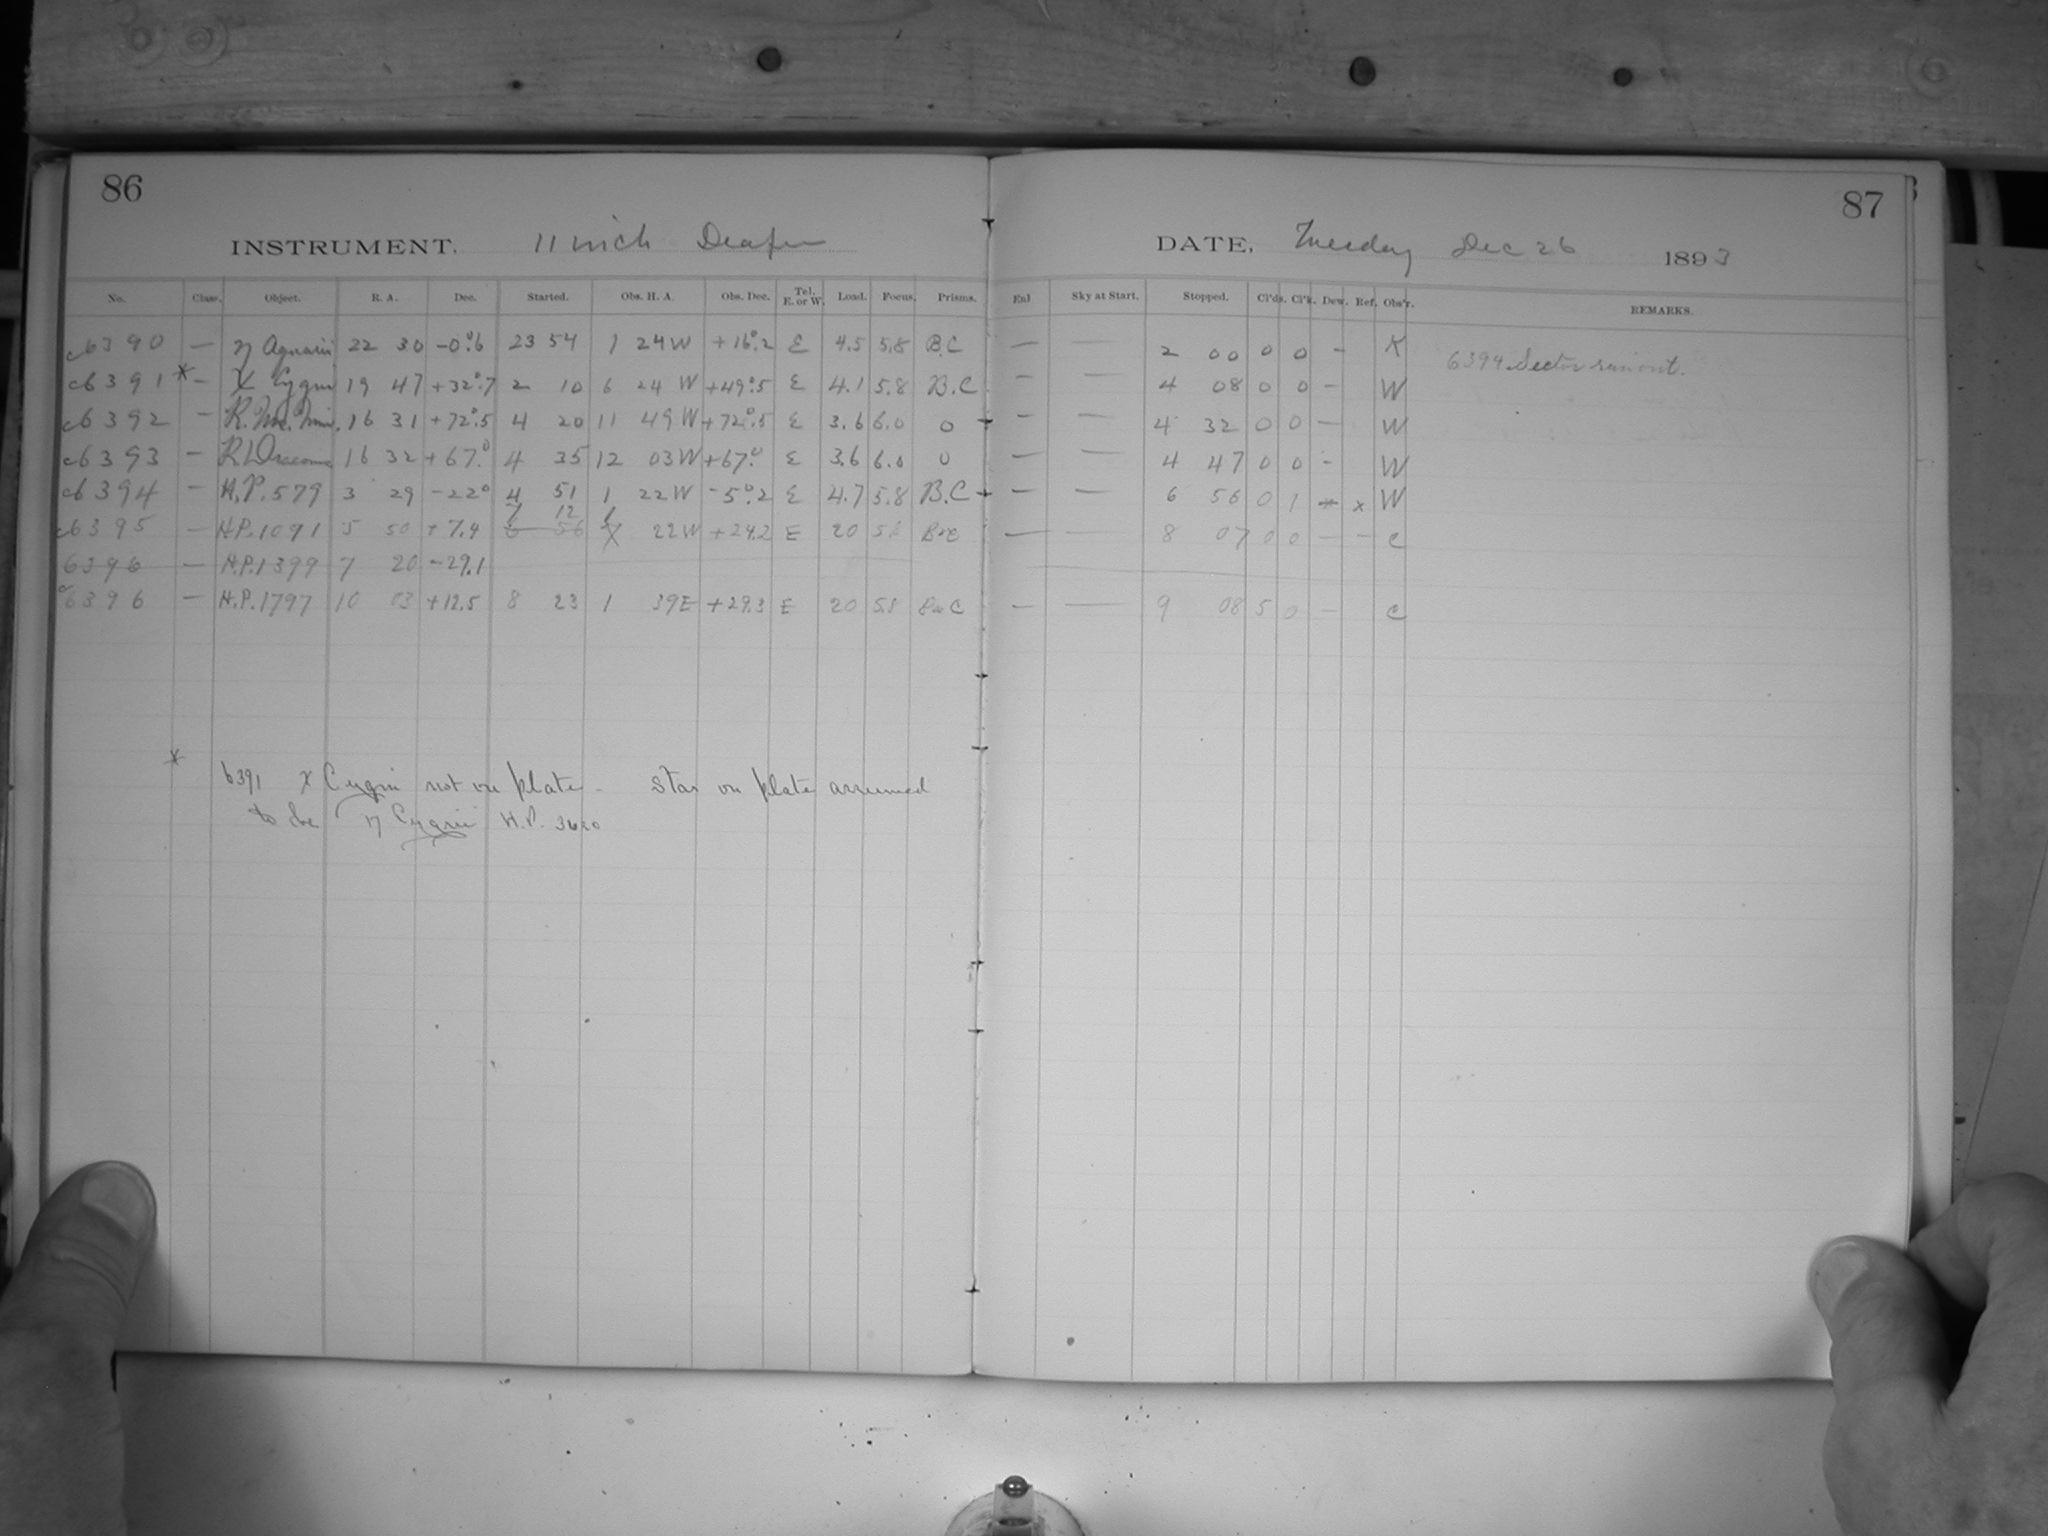 86
87
INSTRUMENT. 11 inch Draper
DATE, Tuesday Dec 26 1893
No. Class. Object. R. A. Dec. Started. Obs. H. A. Obs. Dec. Tel. E. or W. Load. Focus. Prisms. Enl Sky at Start. Stopped. Cl'ds. Cl'k. Dew. Ref. Obs'r. REMARKS.
c6390 — η Aquarii 22 30 -0°.6 23 54 1 24W +16°.2 E 4.5 5.8 B.C — — 2 00 0 0 - K
c6391* - χ Cygni 19 47 +32°.7 2 10 6 24 W +49°.5 E 4.1 5.8 B.C - — 4 08 0 0 - W
c6392 - R. Urs. Min. 16 31 +72°.5 4 20 11 49W +72°.5 E 3.6 6.0 0 - — 4 32 0 0 — W
c6393 - R Draconis 16 32 +67.° 4 35 12 03W +67.° E 3.6 6.0 0 — — 4 47 0 0 - W
c6394 - H.P. 579 3 29 -22° 4 51 1 22W -5°.2 E 4.7 5.8 B.C — — 6 56 0 1 * x W
6394 Sector run out.
7 12 1
c6395 — H.P. 1091 5 50 +7.4 6 56 22W +24.2 E 20 5.8 B+C — — 8 07 0 0 — - C
6396 — H.P. 1399 7 20 -29.1
c6396 — H.P. 1797 10 03 +12.5 8 23 1 39E +29.3 E 20 5.8 B+C — — 9 08 5 0 — C
* 6391 χ Cygni not on plate - Star on plate assumed
to be η Cygni H.P. 3620